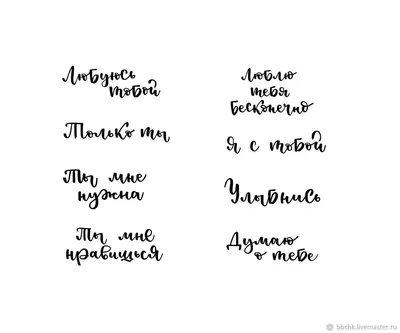 Любуюсь
тобой
Только ты
Ты мне
нужна
Ты мне
нравишься
Люблю
тебя
бесконечно
Я с тобой
Улыбнись
Думаю
о тебе
bbchk.livemaster.ru